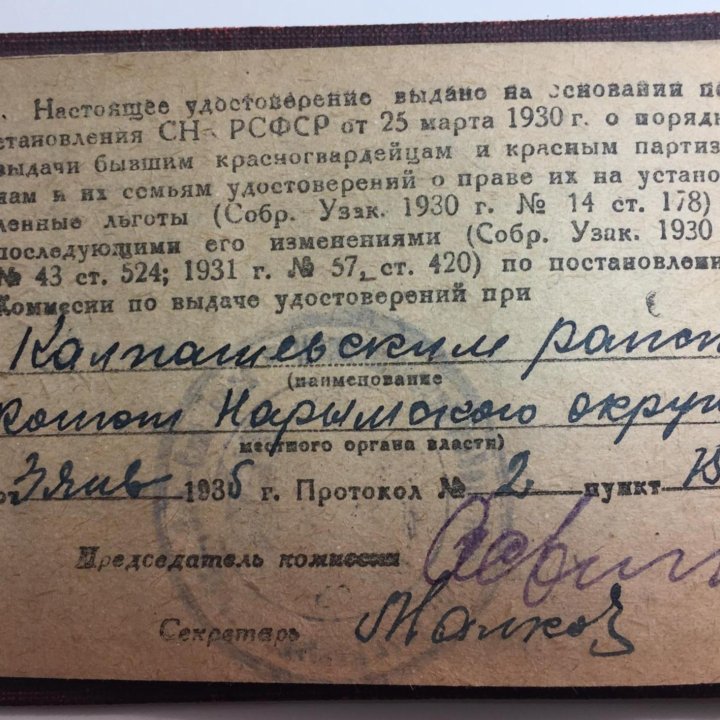 . Настоящее удостоверение выдано на основании по
становления СН РСФСР от 25 марта 1930 г. о порядк
выдачи бывшим красногвардейцам и красным партиз
нам и их семьям удостоверений о праве их на устано
ленные льготы (Собр. Узак. 1930 г. № 14 ст. 178)
последующими его изменениями (Собр. Узак. 1930
№ 43 ст. 524; 1931 г. № 57, ст. 420) по постановлени
Комиссии по выдаче удостоверений при
Колпашевским район
(наименование
Нарымского округ
местного органа власти)
3 янв 1935 г. Протокол № 2 пункт
Председатель комиссии
Секретарь